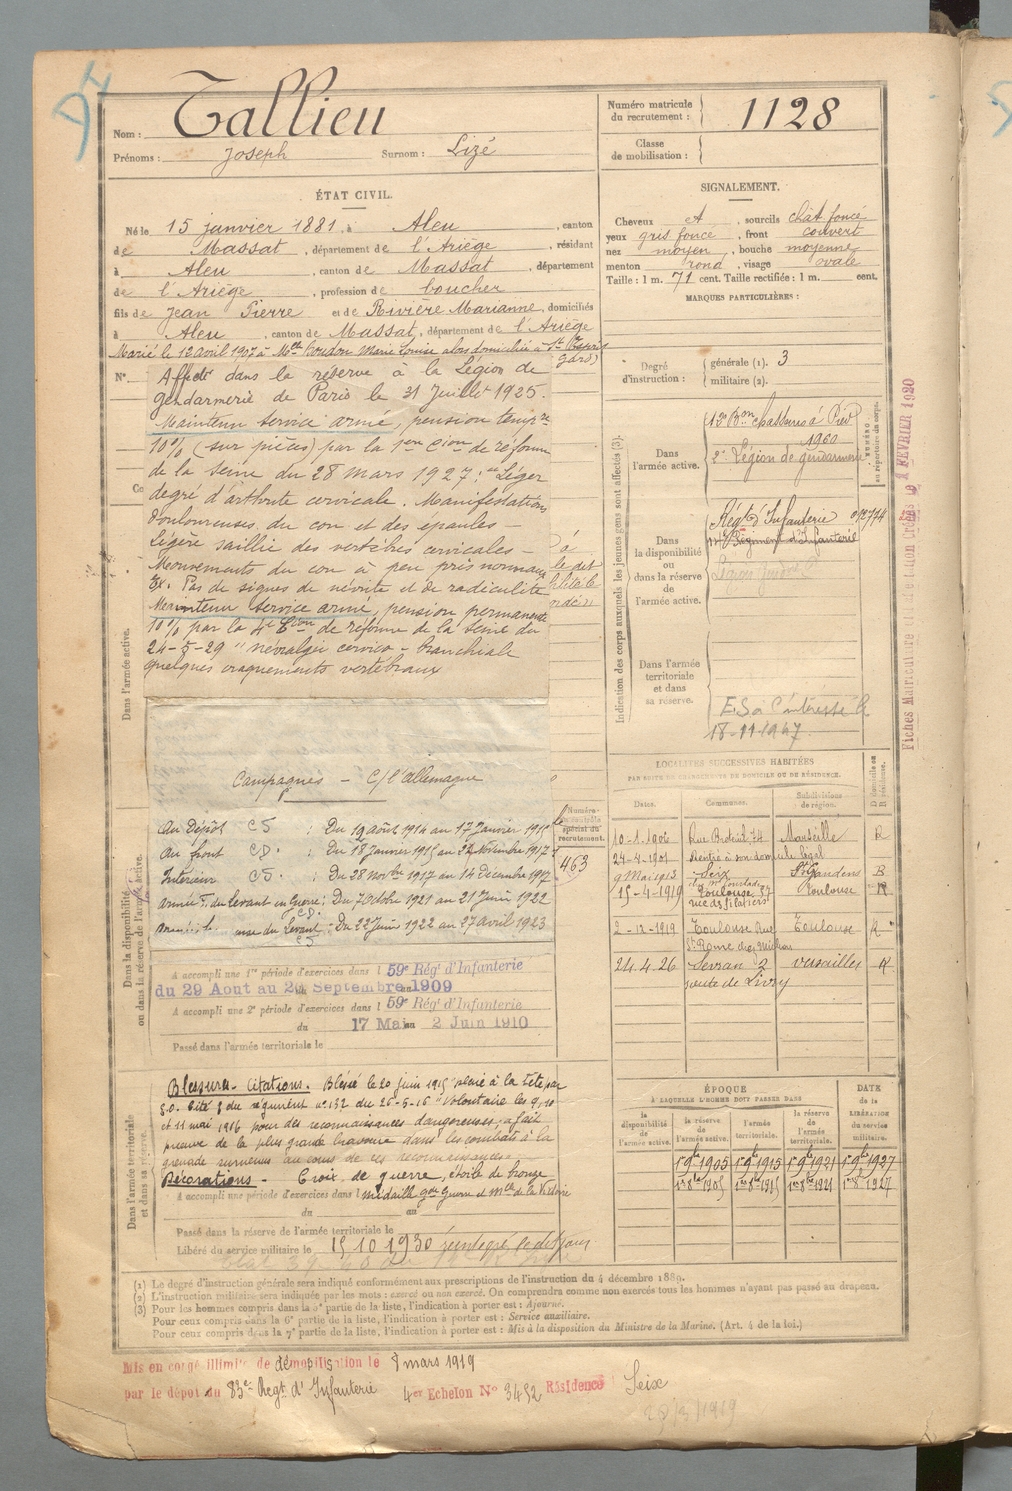 Nom : Tallieu
Prénoms : Joseph Surnom : Lizé
Numéro matricule
du recrutement : 1128
Classe
de mobilisation :
ÉTAT CIVIL.
Né le 15 janvier 1881, à Aleu, canton
de Massat, département de l'Ariège, résidant
à Aleu, canton de Massat, département
de l'Ariège, profession de boucher
fils de Jean Pierre et de Rivière Marianne, domiciliés
à Aleu, canton de Massat, département de l'Ariège
Marié le 12 avril 1907 à Melle Marie Louise alors domiciliée à
Gard)
N°
SIGNALEMENT.
Cheveux et, sourcils chât. foncé
yeux gris foncé, front couvert
nez moyen, bouche moyenne
menton rond, visage ovale
Taille : 1 m. 71 cent. Taille rectifiée : 1 m. cent.
MARQUES PARTICULIÈRES :
Degré
d'instruction :
générale (1). 3
militaire (2).
Affecté dans la réserve à la Légion de
Gendarmerie de Paris le 31 Juillet 1925.
Maintenu service armé, pension tempre
10% (sur pièces) par la 1ere Cion de réforme
de la Seine du 28 mars 1927 : Léger
degré d'arthrite cervicale. Manifestations
douloureuses du cou et des épaules -
Légère saillie des vertèbres cervicales -
Mouvements du cou à peu près normaux
Pas de signes de névrite et de radiculite
Maintenu service armé, pension permanente
10% par la 4e Cion de réforme de la Seine du
24-5-29 "névralgie cervico-branchiale
quelques craquements vertébraux
Indication des corps auxquels les jeunes gens sont affectés (3).
Dans
l'armée active.
13e Bon chasseurs à Pied
1960
2e Légion de gendarmerie
NUMÉRO
au répertoire du corps.
Dans
la disponibilité
ou
dans la réserve
de l'armée active.
Régt d'Infanterie
Régiment d'Infanterie
Dans l'armée
territoriale
et dans
sa réserve.
18-11-1947
Fiches Matricules FEVRIER 1920
Dans l'armée active.
Campagnes - C/ l'Allemagne
Au Dépôt CS : Du 19 août 1914 au 17 Janvier 1915
Au front CD : Du 18 Janvier 1915 au 27 Novembre 1917
Intérieur CS : Du 28 novbre 1917 au 14 Décembre 1917
armée F. du Levant en Guerre : Du 7 Octobre 1921 au 21 Juin 1922
CD.
du Levant : Du 22 Juin 1922 au 27 avril 1923
CS
Numéro
spécial du
recrutement.
463
Dans la disponibilité
ou dans la réserve de l'armée active.
A accompli une 1re période d'exercices dans l 59e Rég' d'Infanterie
du 29 Aout au Septembre 1909
A accompli une 2e période d'exercices dans l 59e Rég' d'Infanterie
du 17 Mai au 2 Juin 1910
Passé dans l'armée territoriale le
LOCALITÉS SUCCESSIVES HABITÉES
PAR SUITE DE CHANGEMENT DE DOMICILE OU DE RÉSIDENCE.
Dates. Communes. Subdivisions de région. D domicile ou R résidence.
10-1-1906 Rue Breteuil 74 Marseille R
24-4-1901 Rentré à son domicile légal
9 Mai 1913 Seix St Gaudens R
15-4-1919 Toulouse 37 Toulouse R
rue des filatiers
2-12-1919 Toulouse Rue Toulouse R
St Rome chez Michou
24.4.26 Sevran 2 Versailles R
route de Livry
Dans l'armée territoriale
et dans sa réserve.
Blessures - Citations. Blessé le 20 juin 1915 plaie à la tête par
E.O. Cité à l'O du régiment n° 132 du 26-5-16 "Volontaire les 9, 10
et 11 mai 1916 pour des reconnaissances dangereuses, a fait
preuve de la plus grande bravoure dans les combats à la
grenade survenus au cours de ces reconnaissances".
Décorations - Croix de guerre, étoile de bronze
A accompli une période d'exercices dans l Médaille Gde Guerre et Mlle de la Victoire
du au
Passé dans la réserve de l'armée territoriale le
Libéré du service militaire le 15 10 1930
ÉPOQUE
À LAQUELLE L'HOMME DOIT PASSER DANS
DATE
de la
LIBÉRATION
du service
militaire.
la disponibilité de l'armée active.
la réserve de l'armée active.
l'armée territoriale.
la réserve de l'armée territoriale.
1er 9bre 1905 1er 9bre 1915 1er 9bre 1921 1er 9bre 1927
1er 8bre 1905 1er 8bre 1915 1er 8bre 1921 1er 8bre 1927
(1) Le degré d'instruction générale sera indiqué conformément aux prescriptions de l'instruction du 4 décembre 1889.
(2) L'instruction militaire sera indiquée par les mots : exercé ou non exercé. On comprendra comme non exercés tous les hommes n'ayant pas passé au drapeau.
(3) Pour les hommes compris dans la 5e partie de la liste, l'indication à porter est : Ajourné.
Pour ceux compris dans la 6e partie de la liste, l'indication à porter est : Service auxiliaire.
Pour ceux compris dans la 7e partie de la liste, l'indication à porter est : Mis à la disposition du Ministre de la Marine. (Art. 4 de la loi.)
Mis en congé illimité de démobilisation le 8 mars 1919
par le dépôt du 83e Régt d'Infanterie 4er Echelon N° 3452 Résidence Seix
28/3/1919